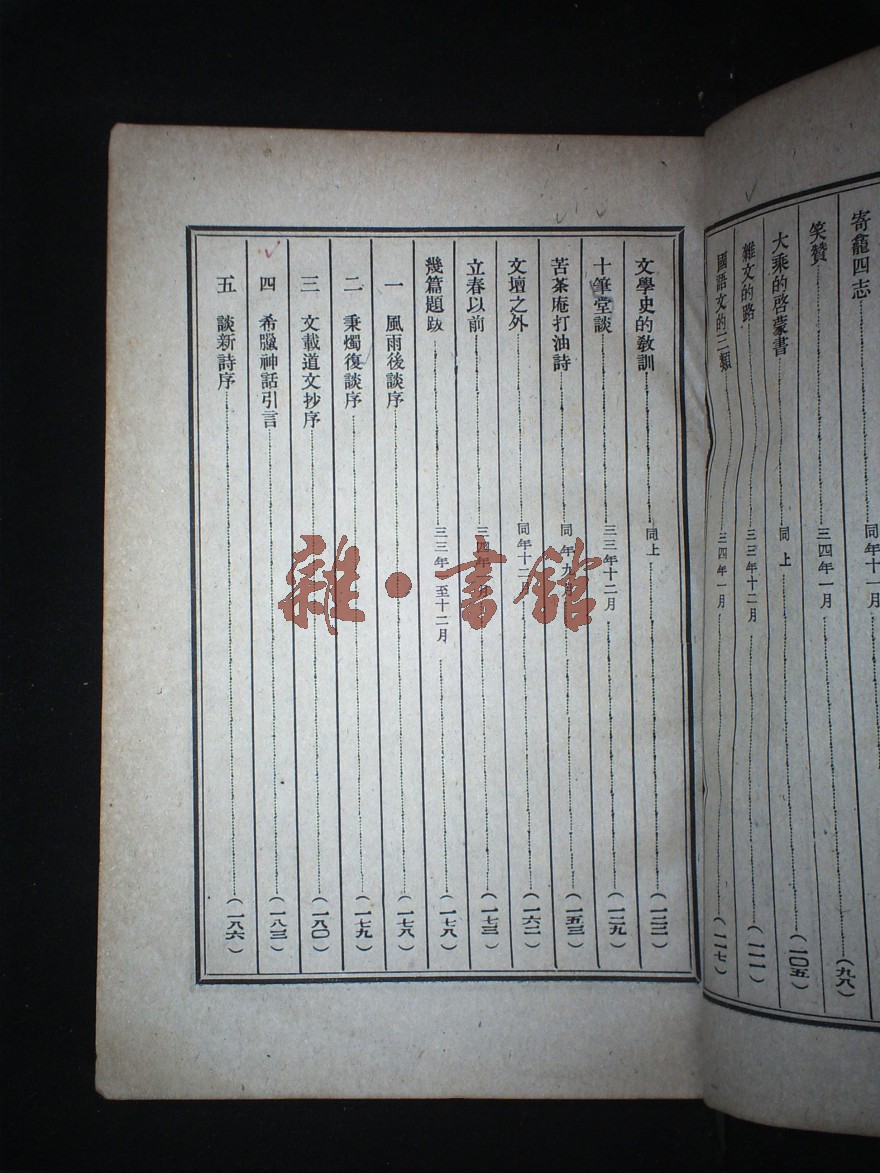 寄龕四志 同年十一月
笑贊 三四年一月 (九八)
大乘的啓蒙書 同上 (一〇五)
雜文的路 三三年十二月 (一一一)
國語文的三類 三四年一月 (一一七)
文學史的教訓 同上 (一二二)
十筆堂談 三三年十二月 (一二九)
苦茶庵打油詩 同年九月 (一五三)
文壇之外 同年十二月 (一六二)
立春以前 三四年一月 (一七三)
幾篇題跋 三三年 至十二月 (一七八)
一 風雨後談序 (一七八)
二 秉燭復談序 (一七九)
三 文載道文抄序 (一八〇)
四 希臘神話引言 (一八三)
五 談新詩序 (一八六)
雜·書館